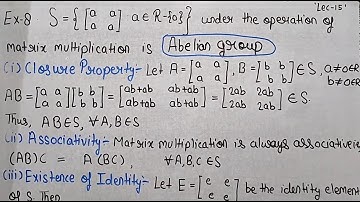 'Lec-15'
Ex-8 S = {[a a; a a] : a ∈ R-{0}} under the operation of
matrix multiplication is Abelian group
(i) Closure Property:- Let A = [a a; a a], B = [b b; b b] ∈ S, a≠0∈R b≠0∈R
AB = [a a; a a][b b; b b] = [ab+ab ab+ab; ab+ab ab+ab] = [2ab 2ab; 2ab 2ab] ∈ S.
Thus, AB ∈ S, ∀ A,B ∈ S
(ii) Associativity:- Matrix multiplication is always associative
(AB)C = A(BC), ∀ A,B,C ∈ S
(iii) Existence of Identity:- Let E = [e e; e e] be the identity element
of S. Then